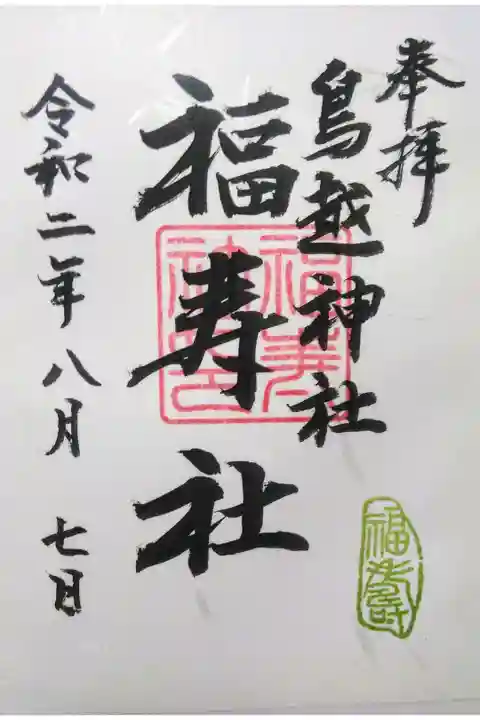 奉拝
鳥越神社
福寿社
令和二年八月七日
福寿社印
福壽